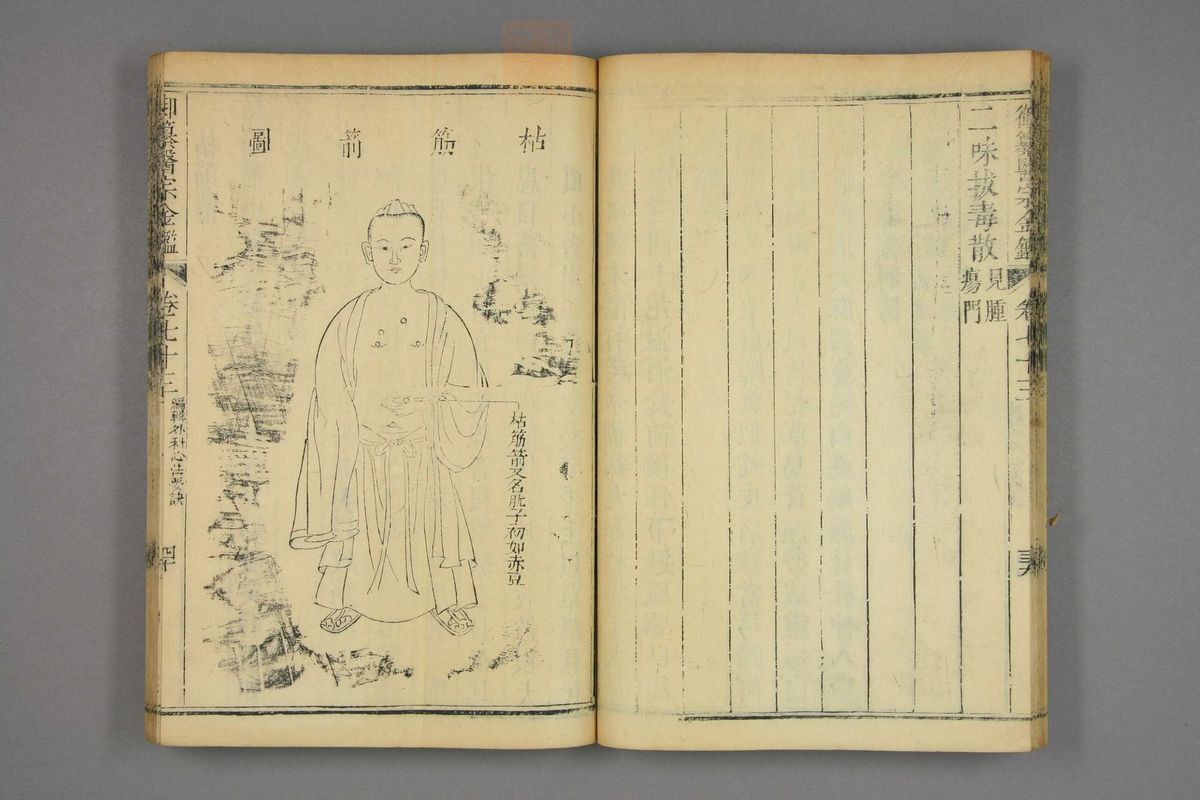 御纂醫宗金鑑 卷七十三
二味拔毒散 見腫瘍門
枯筋箭圖
枯筋箭又名肬子初如赤豆
御纂醫宗金鑑 卷七十三 編輯外科心法要訣 四十